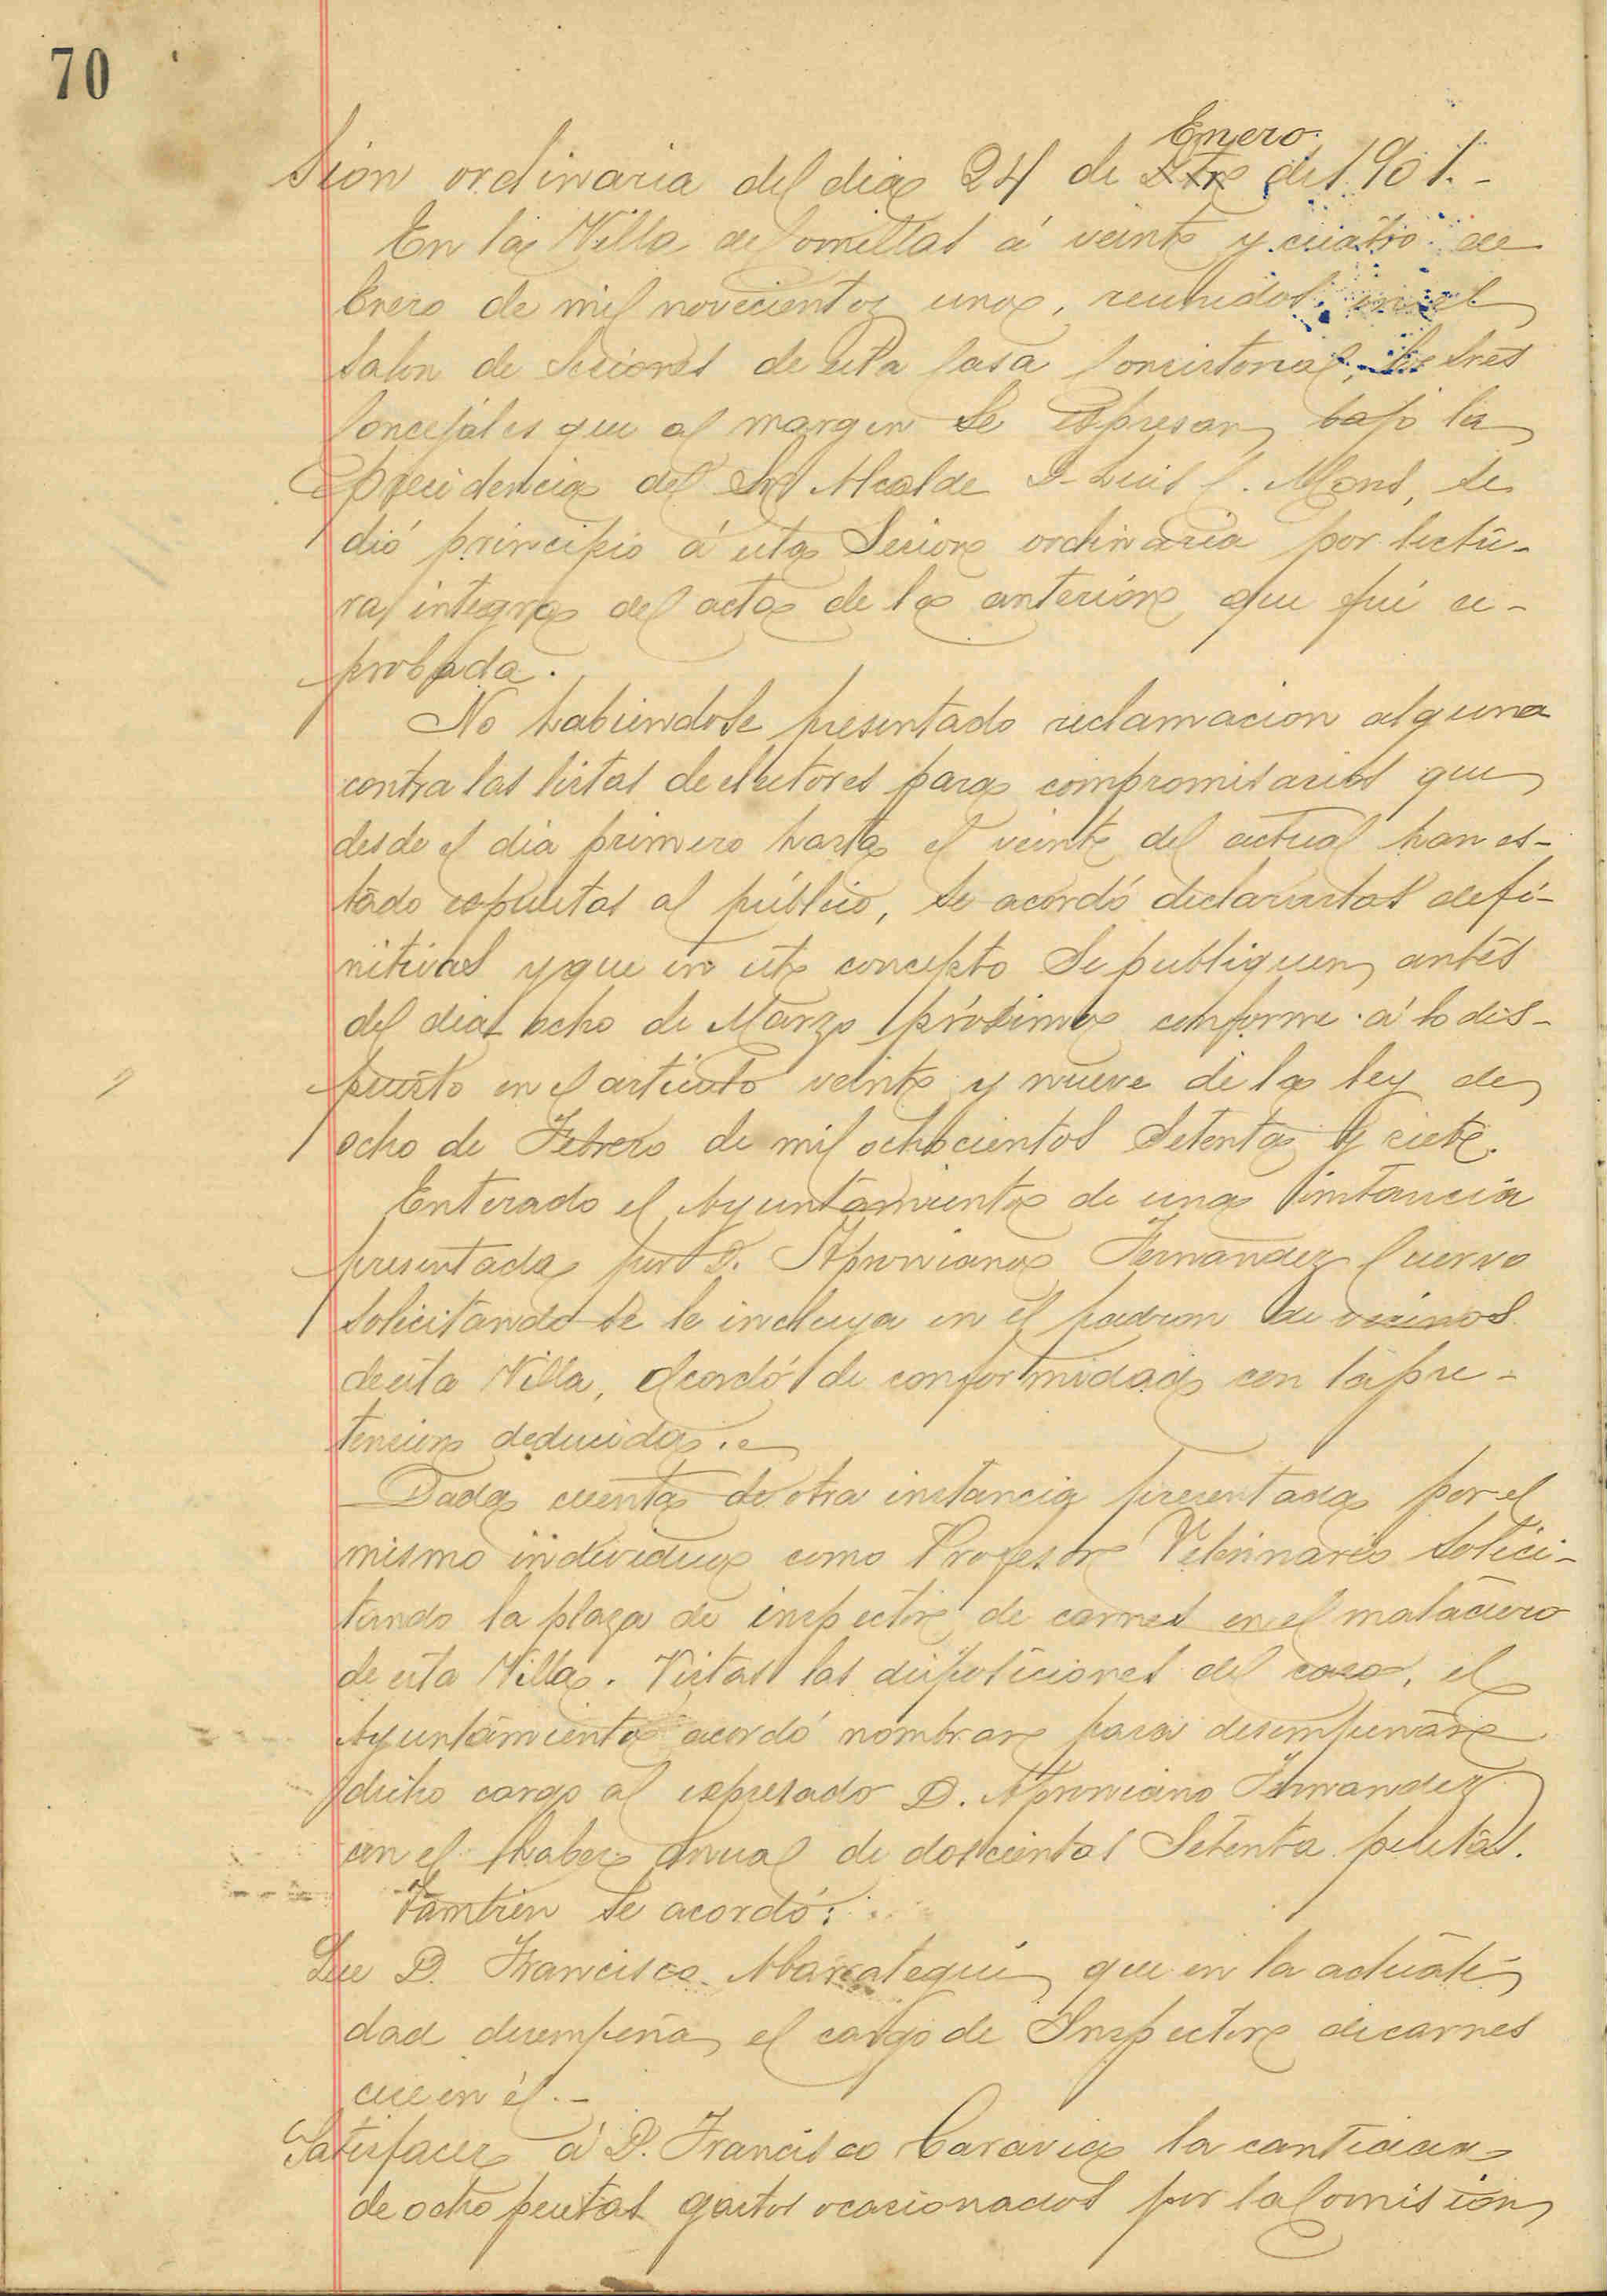 70
Enero
Sion ordinaria del dia 24 de Dbre de 1901.-
En la Villa de Comillas á veinte y cuatro de
Enero de mil novecientos uno, reunidos en el
Salon de Sesiones de esta Casa Consistorial, los Sres
Concejales que al margen se espresan bajo la
presidencia del Sr Alcalde D. Luis C. Mons, se
dió principio á esta Sesion ordinaria por lectu-
ra integra del acta de la anterior que fué a-
probada.
No habiendose presentado reclamacion alguna
contra las listas de electores para compromisarios que
desde el dia primero hasta el veinte del actual han es-
tado espuestas al público, se acordó declararlas defi-
nitivas y que en este concepto se publiquen antes
del dia ocho de Marzo próximo conforme á lo dis-
puesto en el articulo veinte y nueve de la ley de
ocho de Febrero de mil ochocientos setenta y siete.
Enterado el Ayuntamiento de una instancia
presentada por D. Aproniano Fernandez Cuervo
solicitando se le incluya en el padron de vecinos
de esta Villa, acordó de conformidad con la pre-
tension deducida.
Dada cuenta de otra instancia presentada por el
mismo individuo como Profesor Veterinario solici-
tando la plaza de inspector de carnes en el matadero
de esta Villa. Vistas las disposiciones del caso, el
Ayuntamiento acordó nombrar para desempeñar
dicho cargo al espresado D. Aproniano Fernandez
con el haber anual de doscientas setenta pesetas.
Tambien se acordó:
Que D. Francisco Marategui que en la actuali-
dad desempeña el cargo de Inspector de carnes
cese en él.-
Satisfacer á D. Francisco Caravia la cantidad
de ocho pesetas gastos ocasionados por la Comision